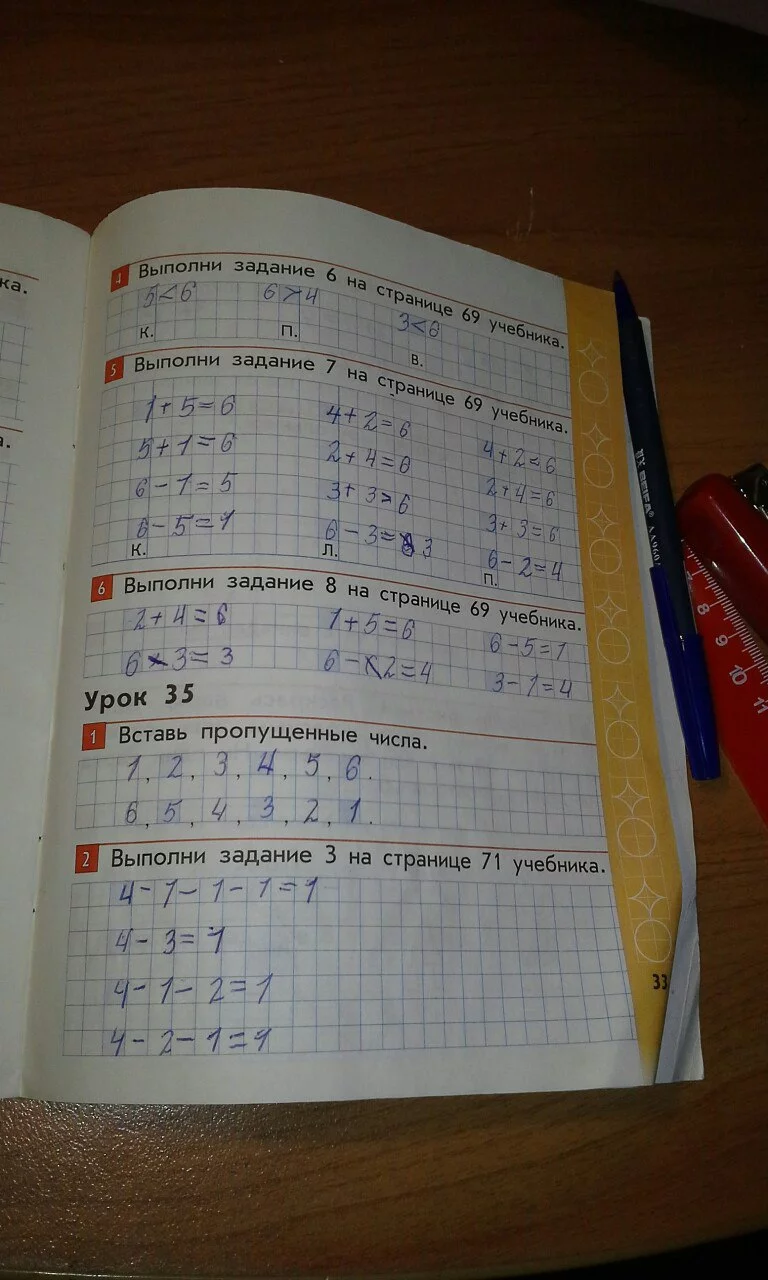 ка.
а.
4 Выполни задание 6 на странице 69 учебника.
5<6 6>4 3<6
К. П. В.
5 Выполни задание 7 на странице 69 учебника.
1+5=6 4+2=6 4+2=6
5+1=6 2+4=6 2+4=6
6-1=5 3+3=6 3+3=6
6-5=1 6-3=3 6-2=4
К. Л. П.
6 Выполни задание 8 на странице 69 учебника.
2+4=6 1+5=6 6-5=1
6-3=3 6-2=4 3-1=4
Урок 35
1 Вставь пропущенные числа.
1, 2, 3, 4, 5, 6.
6, 5, 4, 3, 2, 1.
2 Выполни задание 3 на странице 71 учебника.
4-1-1-1=1
4-3=1
4-1-2=1
4-2-1=1
33
7 8 9 10 11